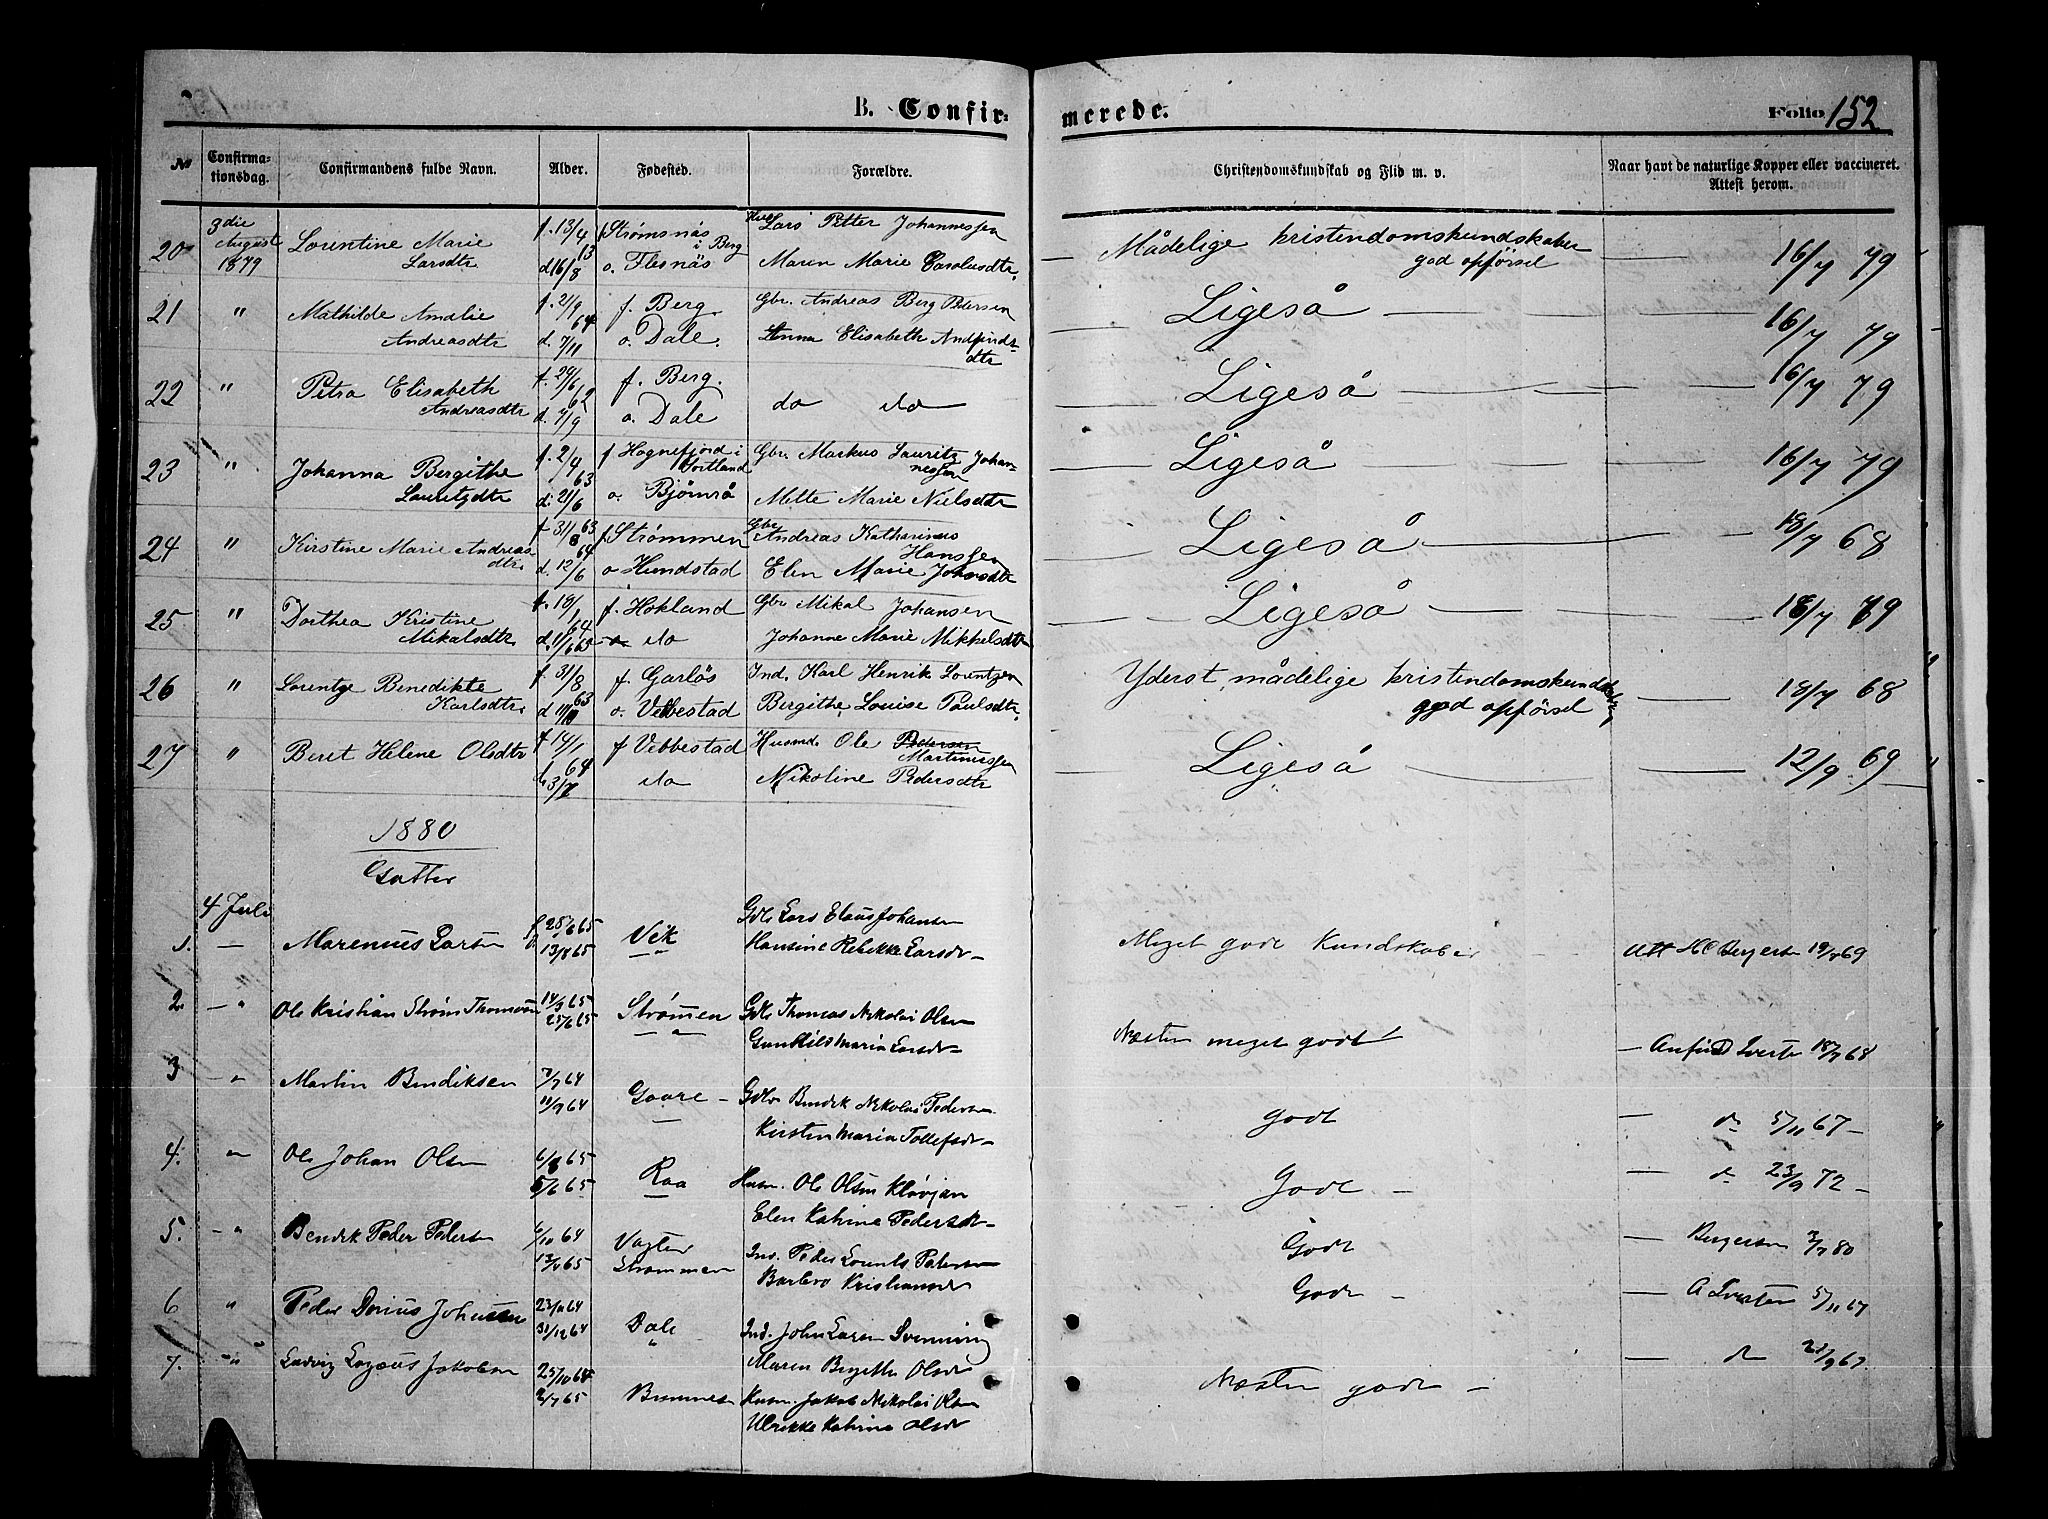 B. Confir-
merede.
Folio 152
No
Confirma-
tionsdag.
Confirmandens fulde Navn.
Alder.
Fødested.
Forældre.
Christendomskundskab og Flid m. v.
Naar havt de naturlige Kopper eller vaccineret.
Attest herom.
20 3die August 1879
Lorentine Marie
Larsdtr
f. 13/4
d 16/8
f Strømsnäs
i Berg
o. Flesnäs
Lars Petter Johannessen
Maren Marie Carolusdtr.
Mådelige kristendomskundskaber
god opførsel
16/7 79
21 "
Mathilde Amalie
Andreasdtr
f. 21/9
64
d. 7/11
f. Berg
o. Dale.
Gbr. Andreas Berg Petersen
Anna Elisabeth Andfinds-
dtr
Ligeså
16/7 79
22 "
Petra Elisabeth
Andreasdtr
f. 29/6
62
d. 7/9
f. Berg.
o. Dale
do do
Ligeså
16/7 79
23 "
Johanna Bergithe
Lauritzdtr
f. 2/4
63
d. 21/6
f Hognfjord i
Sortland
o. Bjørnrå
Gbr. Markus Lauritz Johan-
nessen
Mette Marie Nielsdtr
Ligeså
16/7 79
24 "
Kirstine Marie Andreas
dtr.
f. 31/8 63
64
d. 12/6
f Strømmen
o Hundstad
Gbr Andreas Katharinus
Hanssen
Elen Marie Johnsdtr
Ligeså
18/7 68
25 "
Dorthea Kristine
Mikalsdtr
f. 18/1
64
d. 11/6 65
f. Hokland
do
Gbr Mikal Johansen
Johanne Marie Mikkelsdtr
Ligeså
18/7 69
26 "
Lorentze Benedikte
Karlsdtr.
f. 31/8
63
f. Garlös
o. Vebbestad
Ind. Karl Henrik Lorentzen
Bergithe Louise Paulsdtr.
Yderst mådelige kristendomskundskab
god opførsel
18/7 68
27 "
Beret Helene Olsdtr
f 14/1
64
3/7
f Vebbestad
do
Husmd. Ole Pedersen
Martinussen
Nikoline Pedersdtr
Ligeså
12/9 69
1880
Gutter
4 Juli
1. —
Marenius Larsen
f. 28/6 65
d. 13/8 65
Vik
— " —
Gdbr Lars Elaus Johansen
Hansine Rebekke Larsdr
Meget gode Kundskaber
Att HC Bergersen 19/8 69
2 — "
Ole Kristian Strøm Thomesen
14/3 65
25/6 65
Strømen
— " —
Gdbr Thomas Nikolai Olsen
Gunhild Maria Larsdr
Næsten meget godt
Anfind Iversen 18/7 68
3 — "
Martin Bendiksen
7/7 64
11/9 64
Gaare —
Gdbr Bendik Nikolai Pedersen
Kirsten Maria Tollefsdr
godt
— do 5/11 67 —
4. "
Ole Johan Olsen
6/8 65
5/6 65
Raa
Husm. Ole Olsen Kløvjan
Elen Katrine Pedersdr
Godt —
— do 23/9 72 —
5. — "
Bendik Peder Pedersen
6/10 64
13/4 65
Vogter
Strømmen
Ind. Peder Lorents Pedersen
Barbro Kristiansdr
Godt
— Bergersen 3/7 80
6 "
Peder Dorius Johnssen
23/11 64
31/12 64
Dale
"
Ind. John Larsen Svenning
Maren Bergitte Olsdr
Godt —
— A Iversen 5/11 67
7. — "
Ludvig Lagæus Jakobsen
25/10 64
2/7 65
Bremnes
Husm. Jakob Nikolai Olsen
Ulrikke Katrine Olsdr
Næsten godt —
— do 21/9 67.